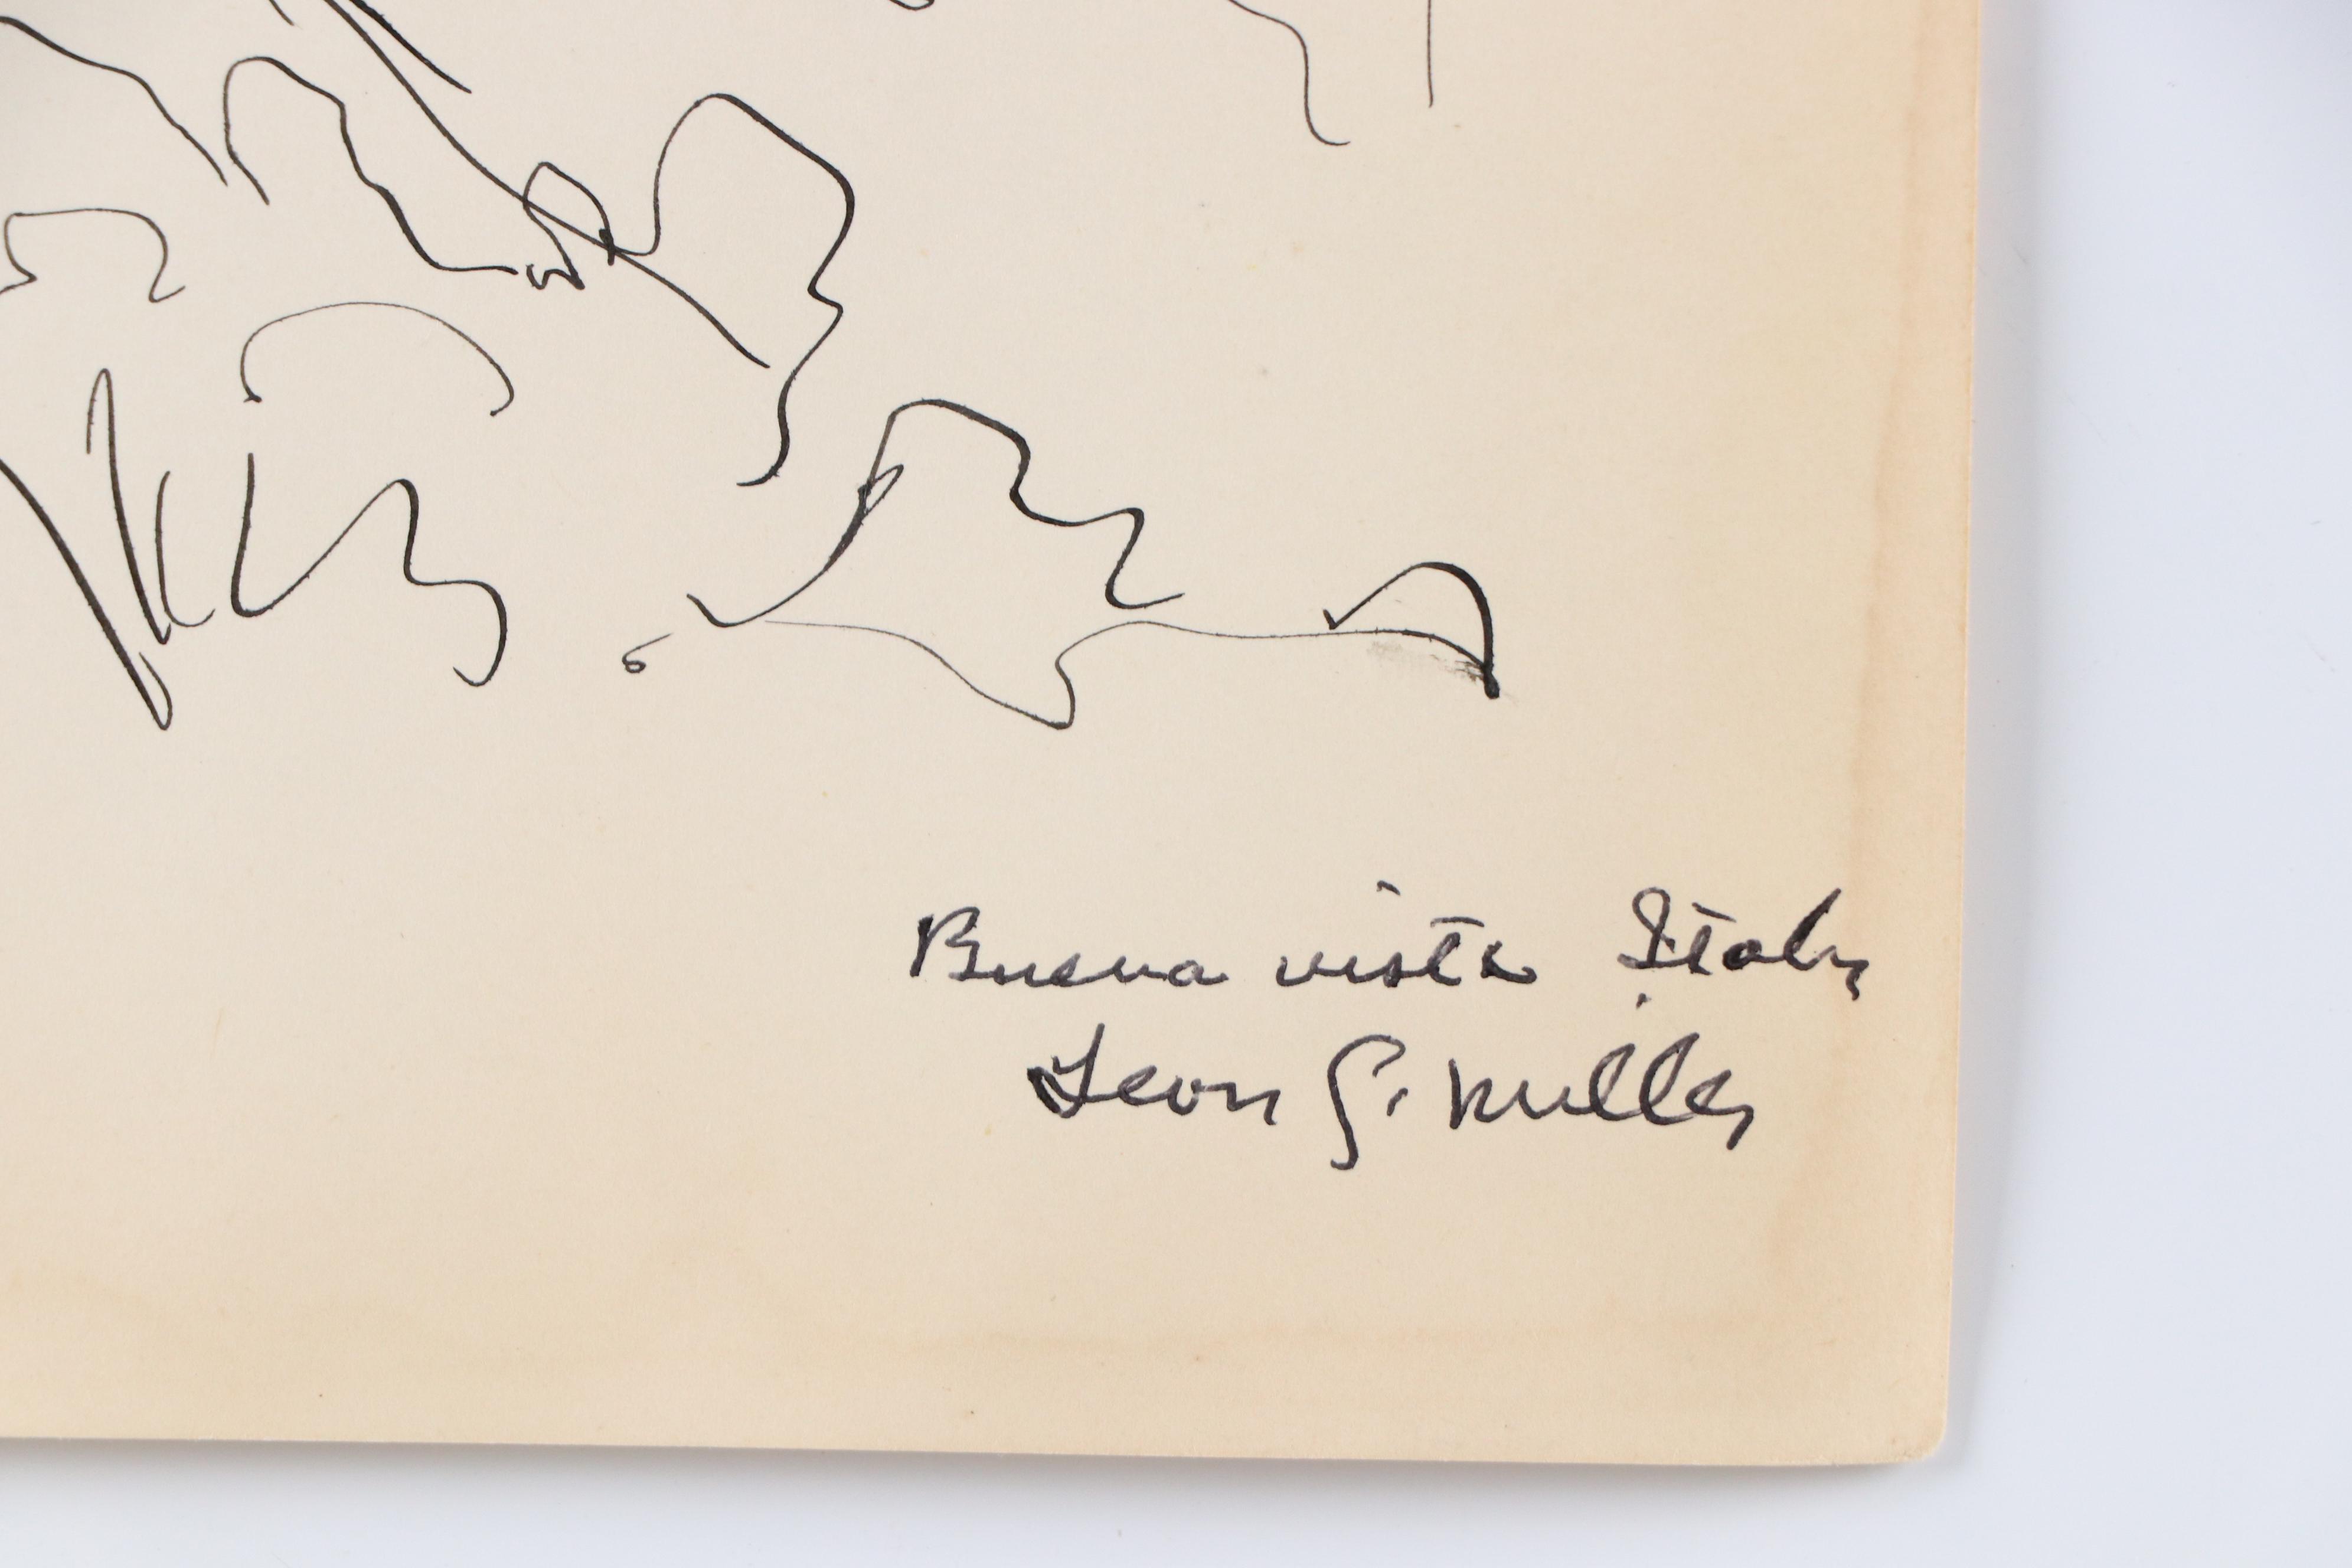 Buena vista Italy
Leon G. Miller